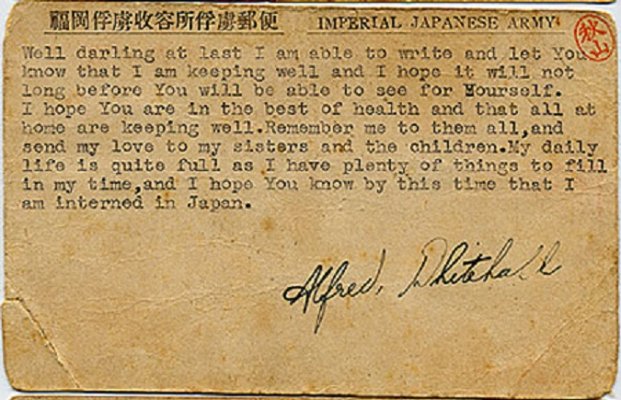 福岡俘虜收容所俘虜郵便 IMPERIAL JAPANESE ARMY
秋山
Well darling at last I am able to write and let You
know that I am keeping well and I hope it will not
long before You will be able to see for Yourself.
I hope You are in the best of health and that all at
home are keeping well.Remember me to them all,and
send my love to my sisters and the children.My daily
life is quite full as I have plenty of things to fill
in my time,and I hope You know by this time that I
am interned in Japan.
Alfred Whitehall